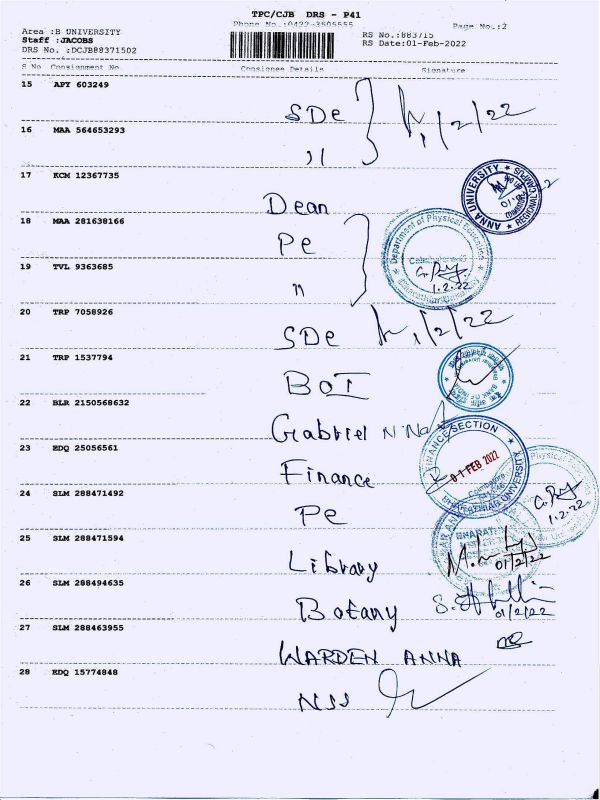 TPC/CJB DRS - P41
Phone No.:0422-3505555
Page No.:2
Area :B UNIVERSITY
Staff :JACOBS
DRS No. :DCJB88371502
RS No.:883715
RS Date:01-Feb-2022
S No Consignment No. Consignee Details Signature
15 APY 603249
SDe 1/2/22
16 MAA 564653293
"
17 KCM 12367735
Dean
ANNA UNIVERSITY REGIONAL CAMPUS
18 MAA 281638166
Pe
Department of Physical Education
1.2.22
19 TVL 9363685
"
20 TRP 7058926
SDe 1/2/22
21 TRP 1537794
BOI
22 BLR 2150568632
Gabriel
23 EDQ 25056561
Finance
FINANCE SECTION
01 FEB 2022
Coimbatore
BHARATHIAR UNIVERSITY
24 SLM 288471492
Pe
1.2.22
25 SLM 288471594
Library
01/2/22
26 SLM 288494635
Botany
01/2/22
27 SLM 288463955
WARDEN ANNA
28 EDQ 15774848
NSS